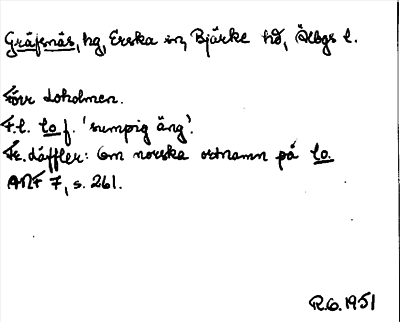 Gräfsnäs, hg, Erska sn, Bjärke hd, Älvbgs l.
Förr Loholmen.
F.l. lo f. 'sumpig äng'.
Fr. Läffler: Om norska ortnamn på lo.
ANF 7, s. 261.
R.G. 1951